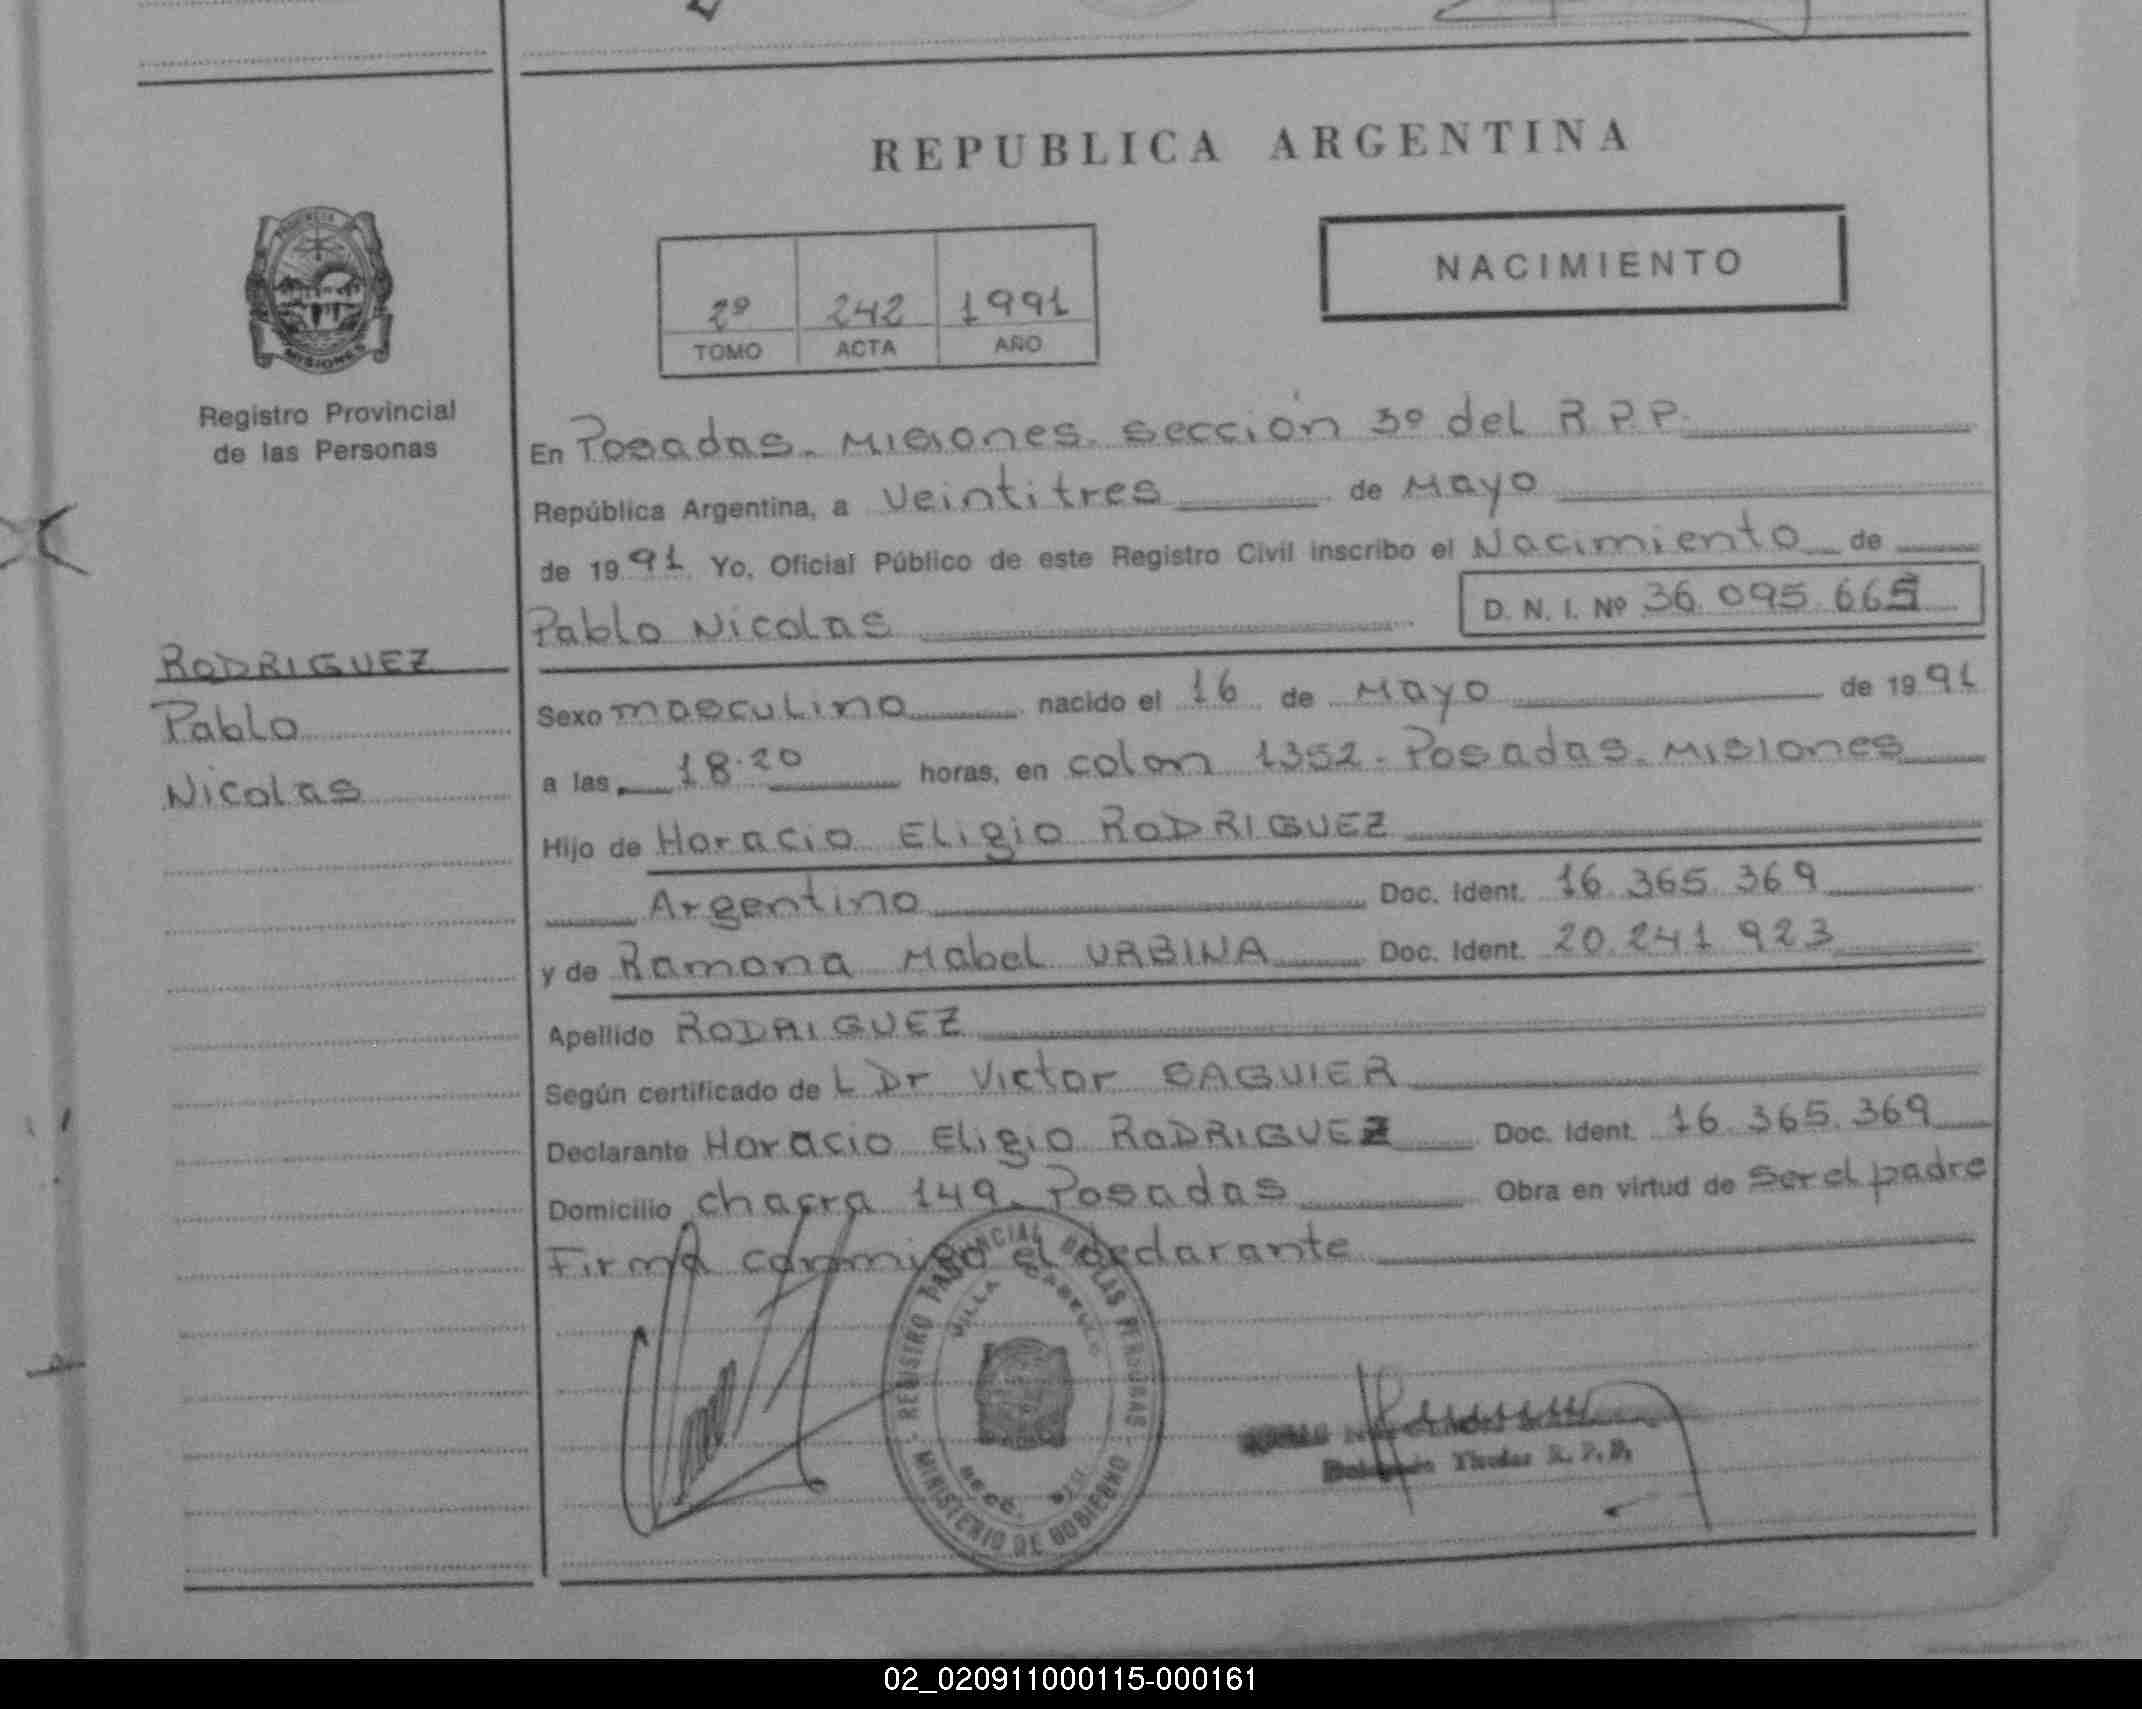 REPUBLICA ARGENTINA
NACIMIENTO
2º 242 1991
TOMO ACTA AÑO
PROVINCIA
MISIONES
Registro Provincial
de las Personas
RODRIGUEZ
Pablo
Nicolas
En Posadas. Misiones. sección 3º del R.P.P.
República Argentina, a veintitres de Mayo
de 1991 Yo, Oficial Público de este Registro Civil inscribo el Nacimiento de
Pablo Nicolas D. N. I. Nº 36.095.665
Sexo masculino nacido el 16 de Mayo de 1991
a las 18.20 horas, en colon 1352. Posadas. Misiones
Hijo de Horacio Eligio RODRIGUEZ
Argentino Doc. Ident. 16.365.369
y de Ramona Mabel URBINA Doc. Ident. 20.241.923
Apellido RODRIGUEZ
Según certificado de L Dr Victor SAGUIER
Declarante Horacio Eligio RODRIGUEZ Doc. Ident. 16.365.369
Domicilio chacra 149. Posadas Obra en virtud de ser el padre
Firma conmigo el declarante
REGISTRO PROVINCIAL DE LAS PERSONAS
VILLA
MINISTERIO DE GOBIERNO
02_020911000115-000161